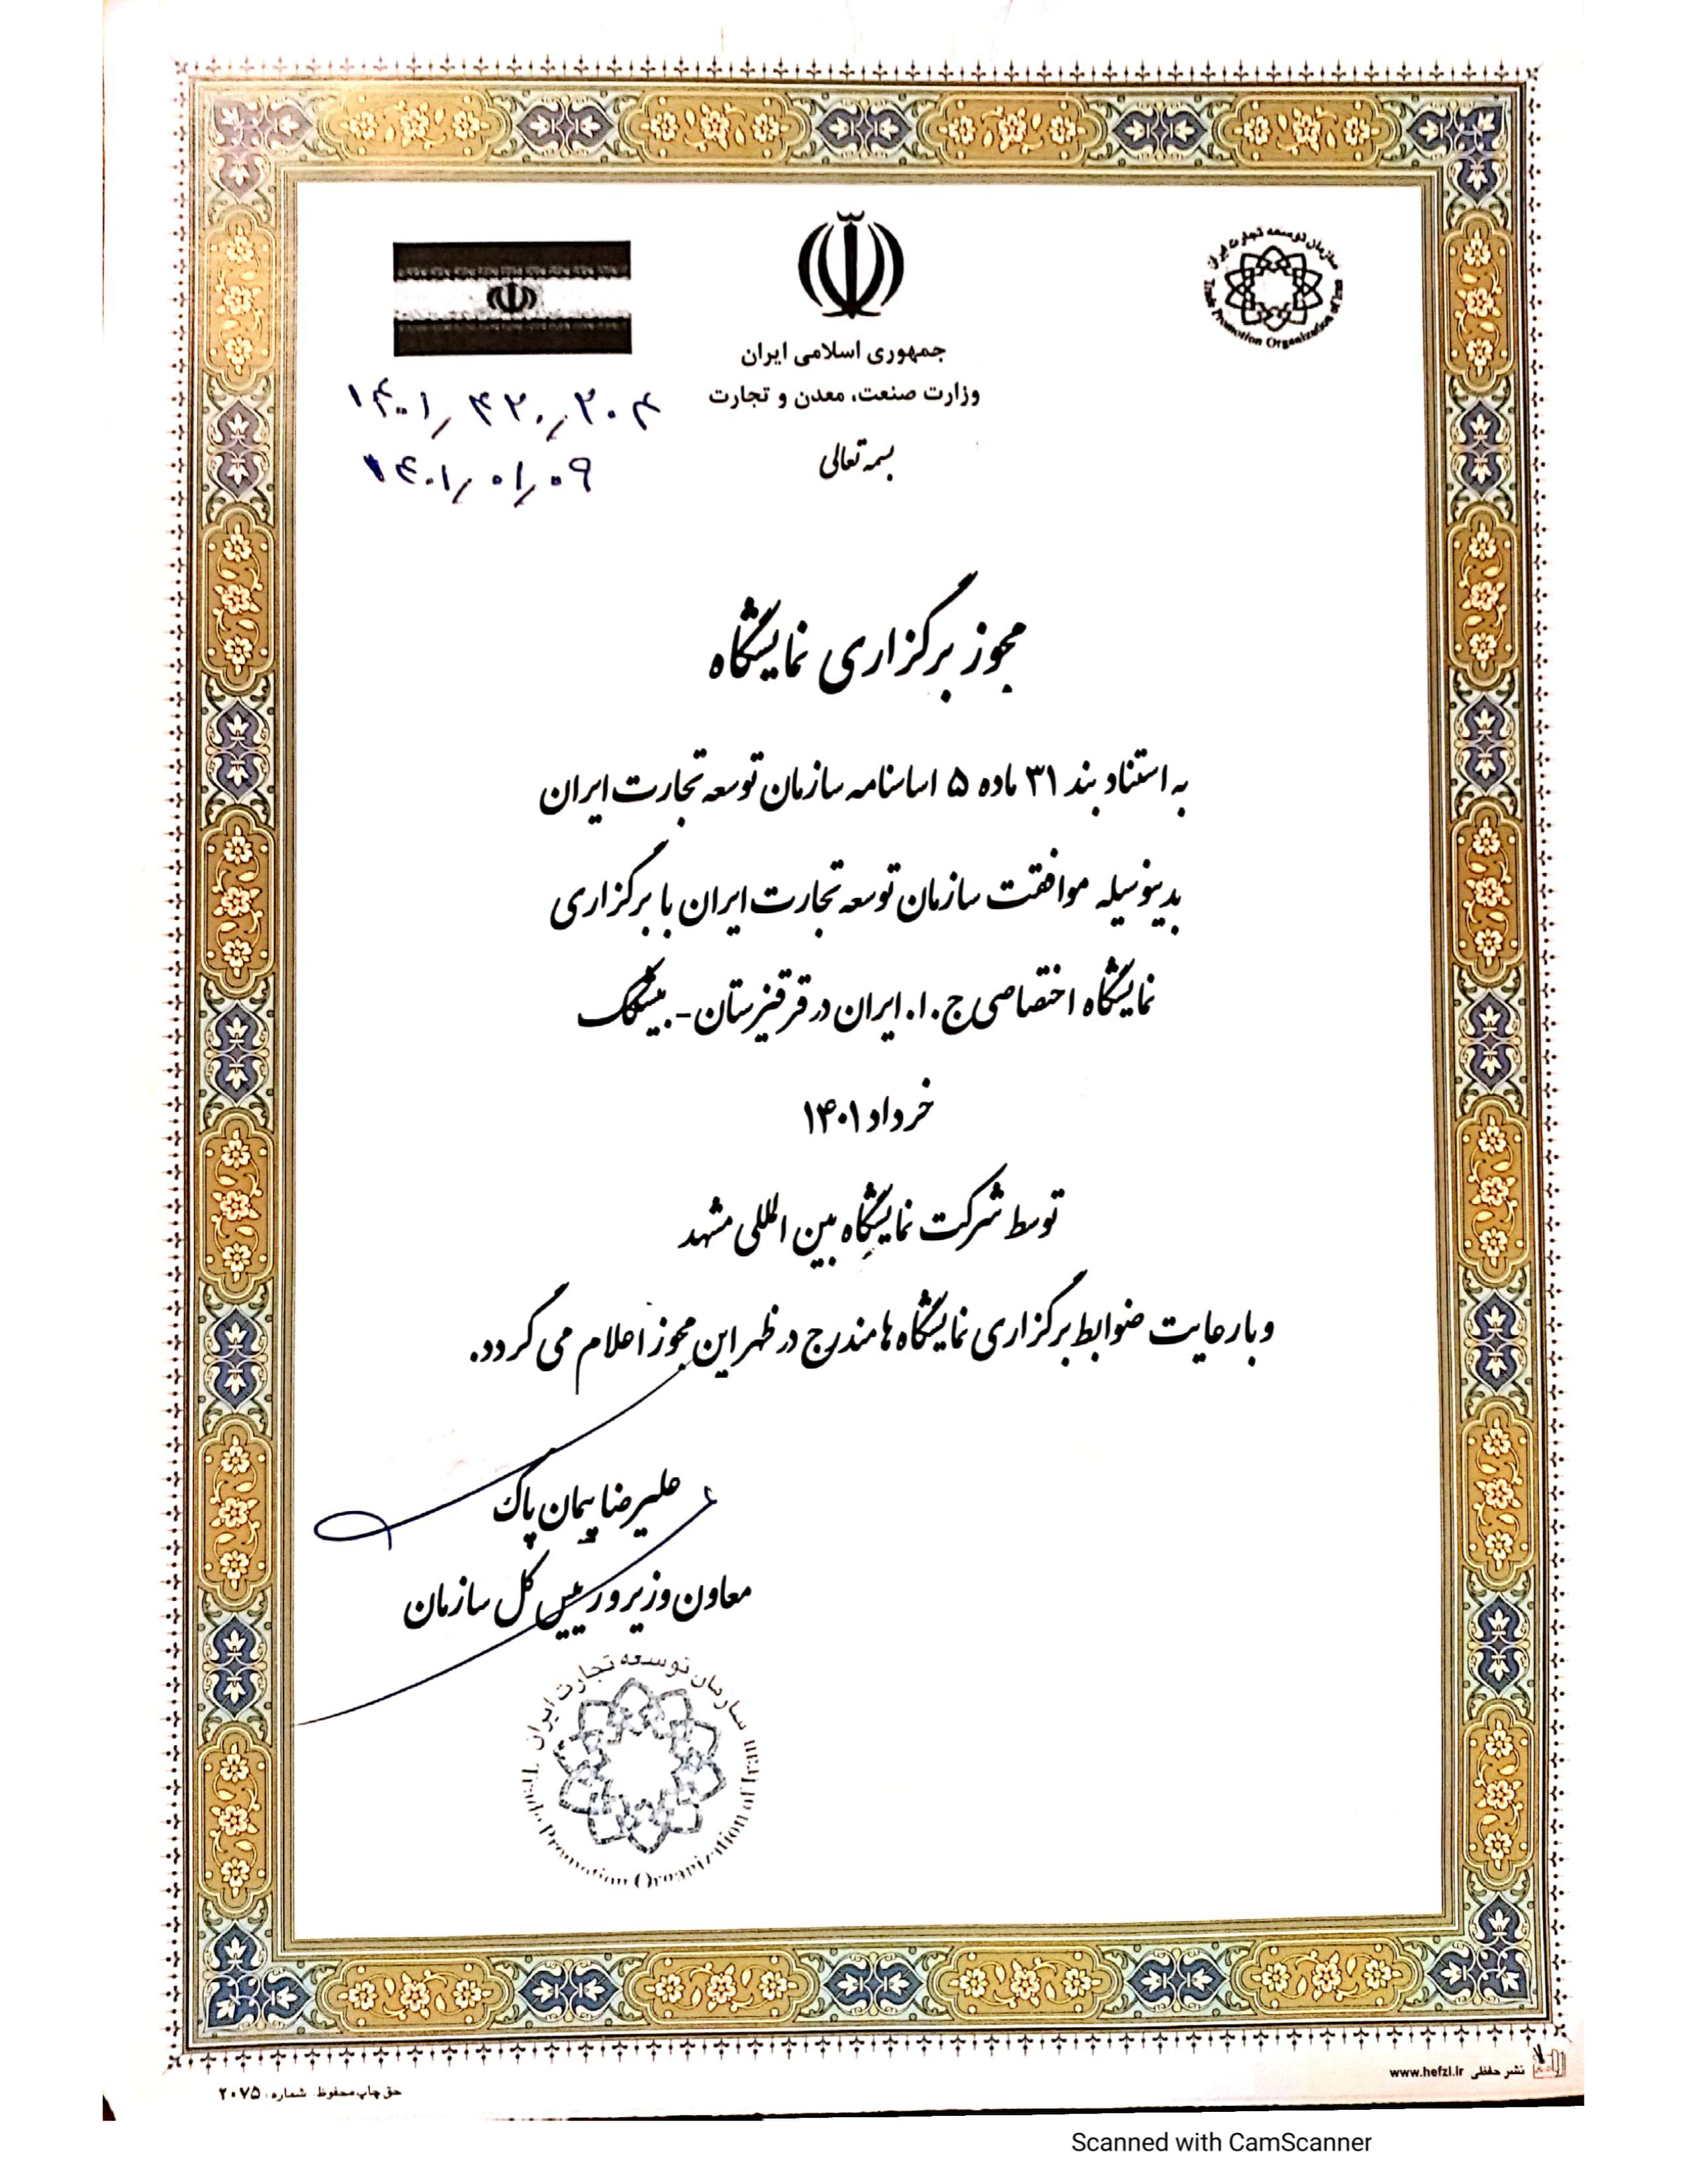 سازمان توسعه تجارت ایران
Trade Promotion Organization of Iran
جمهوری اسلامی ایران
وزارت صنعت، معدن و تجارت
بسمه تعالی
۱۴۰۱/۴۲۰/۲۰۴
۱۴۰۱/۰۱/۰۹
مجوز برگزاری نمایشگاه
به استناد بند ۳۱ ماده ۵ اساسنامه سازمان توسعه تجارت ایران
بدینوسیله موافقت سازمان توسعه تجارت ایران با برگزاری
نمایشگاه اختصاصی ج.ا.ایران در قرقیزستان-بیشکک
خرداد ۱۴۰۱
توسط شرکت نمایشگاه بین المللی مشهد
و با رعایت ضوابط برگزاری نمایشگاه ها مندرج در ظهر این مجوز اعلام می گردد.
علیرضا پیمان پاک
معاون وزیر و رییس کل سازمان
سازمان توسعه تجارت ایران
Trade Promotion Organization of Iran
نشر حفظی www.hefzi.ir
حق چاپ محفوظ. شماره: ۲۰۷۵
Scanned with CamScanner